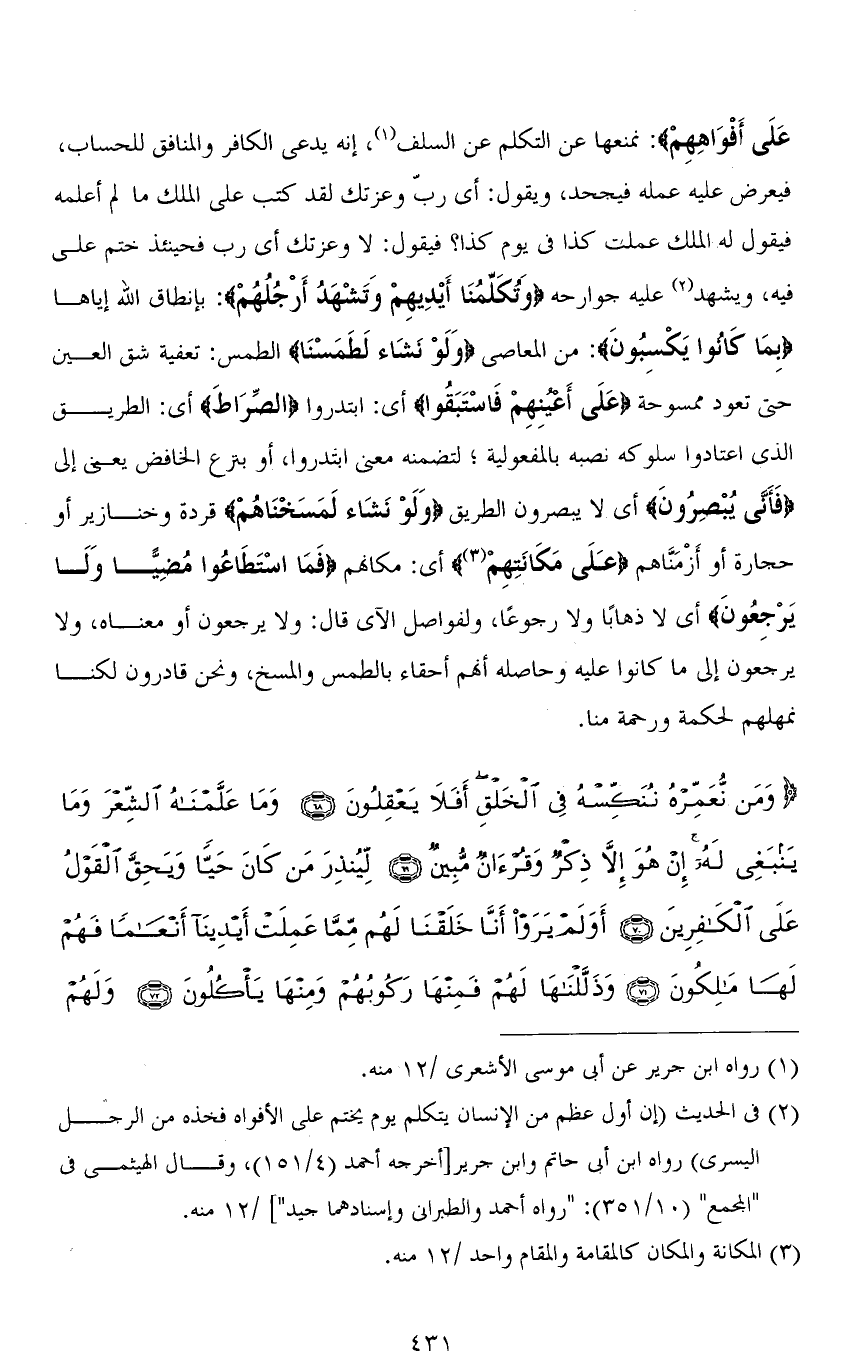 عَلَى أَفْوَاهِهِمْ﴾: نمنعها عن التكلم عن السلف(١)، إنه يدعى الكافر والمنافق للحساب،
فيعرض عليه عمله فيجحد، ويقول: أى ربّ وعزتك لقد كتب على الملك ما لم أعلمه
فيقول له الملك عملت كذا فى يوم كذا؟ فيقول: لا وعزتك أى رب فحينئذ ختم على
فيه، ويشهد(٢) عليه جوارحه ﴿وَتُكَلِّمُنَا أَيْدِيهِمْ وَتَشْهَدُ أَرْجُلُهُمْ﴾: بإنطاق الله إياها
﴿بِمَا كَانُوا يَكْسِبُونَ﴾: من المعاصى ﴿وَلَوْ نَشَاء لَطَمَسْنَا﴾ الطمس: تعفية شق العين
حتى تعود ممسوحة ﴿عَلَى أَعْيُنِهِمْ فَاسْتَبَقُوا﴾ أى: ابتدروا ﴿الصِّرَاطَ﴾ أى: الطريق
الذى اعتادوا سلوكه نصبه بالمفعولية ؛ لتضمنه معنى ابتدروا، أو بترع الخافض يعنى إلى
﴿فَأَنَّى يُبْصِرُونَ﴾ أى لا يبصرون الطريق ﴿وَلَوْ نَشَاء لَمَسَخْنَاهُمْ﴾ قردة وخنازير أو
حجارة أو أزْمَنَّاهم ﴿عَلَى مَكَانَتِهِمْ(٣)﴾ أى: مكانهم ﴿فَمَا اسْتَطَاعُوا مُضِيًّا وَلَا
يَرْجِعُونَ﴾ أى لا ذهابًا ولا رجوعًا، ولفواصل الآى قال: ولا يرجعون أو معناه، ولا
يرجعون إلى ما كانوا عليه وحاصله أنهم أحقاء بالطمس والمسخ، ونحن قادرون لكنا
نمهلهم لحكمة ورحمة منا.
﴿ وَمَن نُّعَمِّرْهُ نُنَكِّسْهُ فِى ٱلْخَلْقِ ۖ أَفَلَا يَعْقِلُونَ ۝٦٨ وَمَا عَلَّمْنَـٰهُ ٱلشِّعْرَ وَمَا
يَنۢبَغِى لَهُۥٓ ۚ إِنْ هُوَ إِلَّا ذِكْرٌ وَقُرْءَانٌ مُّبِينٌ ۝٦٩ لِّيُنذِرَ مَن كَانَ حَيًّا وَيَحِقَّ ٱلْقَوْلُ
عَلَى ٱلْكَـٰفِرِينَ ۝٧٠ أَوَلَمْ يَرَوْا۟ أَنَّا خَلَقْنَا لَهُم مِّمَّا عَمِلَتْ أَيْدِينَآ أَنْعَـٰمًا فَهُمْ
لَهَا مَـٰلِكُونَ ۝٧١ وَذَلَّلْنَـٰهَا لَهُمْ فَمِنْهَا رَكُوبُهُمْ وَمِنْهَا يَأْكُلُونَ ۝٧٢ وَلَهُمْ
(١) رواه ابن جرير عن أبى موسى الأشعرى /١٢ منه.
(٢) فى الحديث (إن أول عظم من الإنسان يتكلم يوم يختم على الأفواه فخذه من الرجل
اليسرى) رواه ابن أبى حاتم وابن جرير[أخرجه أحمد (١٥١/٤)، وقال الهيثمى فى
"المجمع" (٣٥١/١٠): "رواه أحمد والطبرانى وإسنادهما جيد"] /١٢ منه.
(٣) المكانة والمكان كالمقامة والمقام واحد /١٢ منه.
٤٣١